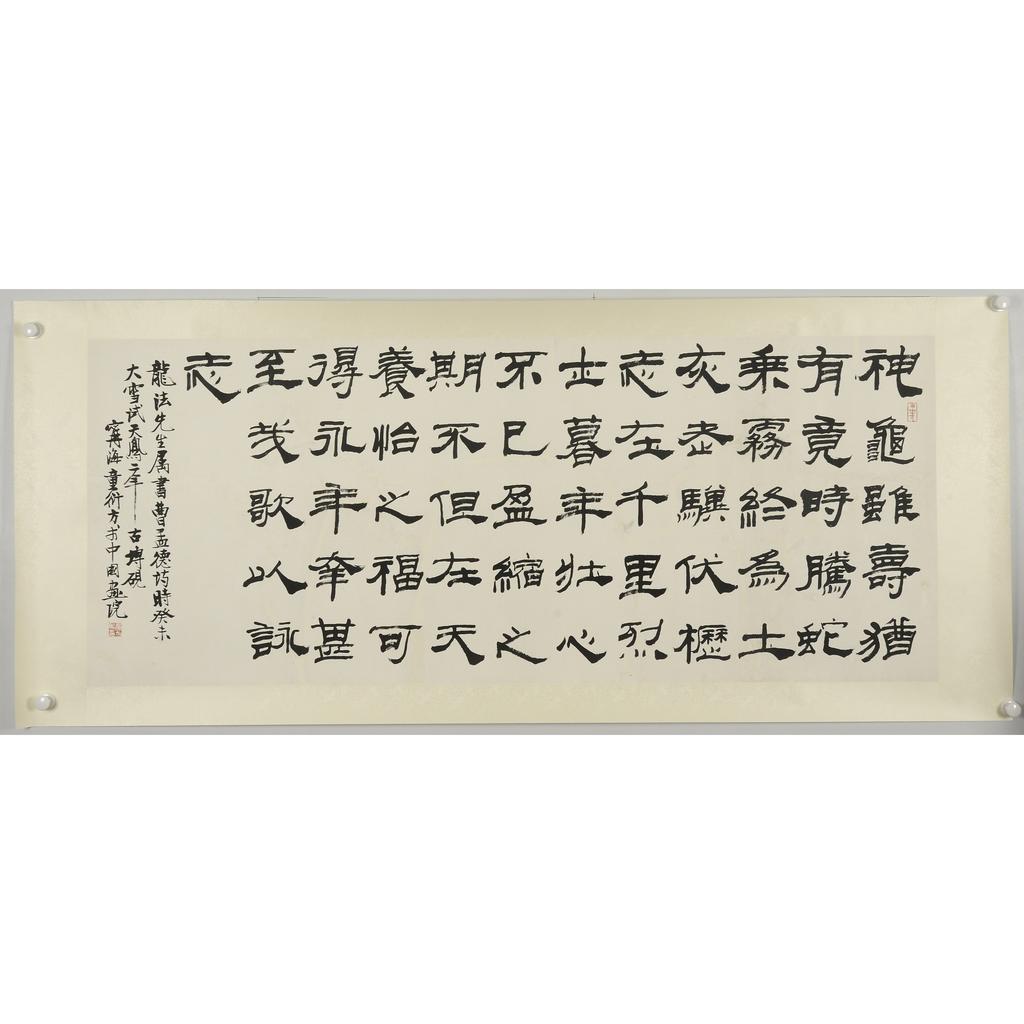 神龜雖壽猶
有竟時騰蛇
乘霧終為土
灰老驥伏櫪
志在千里烈
士暮年壯心
不已盈縮之
期不但在天
養怡之福可
得永年幸甚
至哉歌以詠
志
龍法先生属書曹孟德詩時癸未
大雪試天鳳二年古塼硯
寧海童衍方于中國畫院